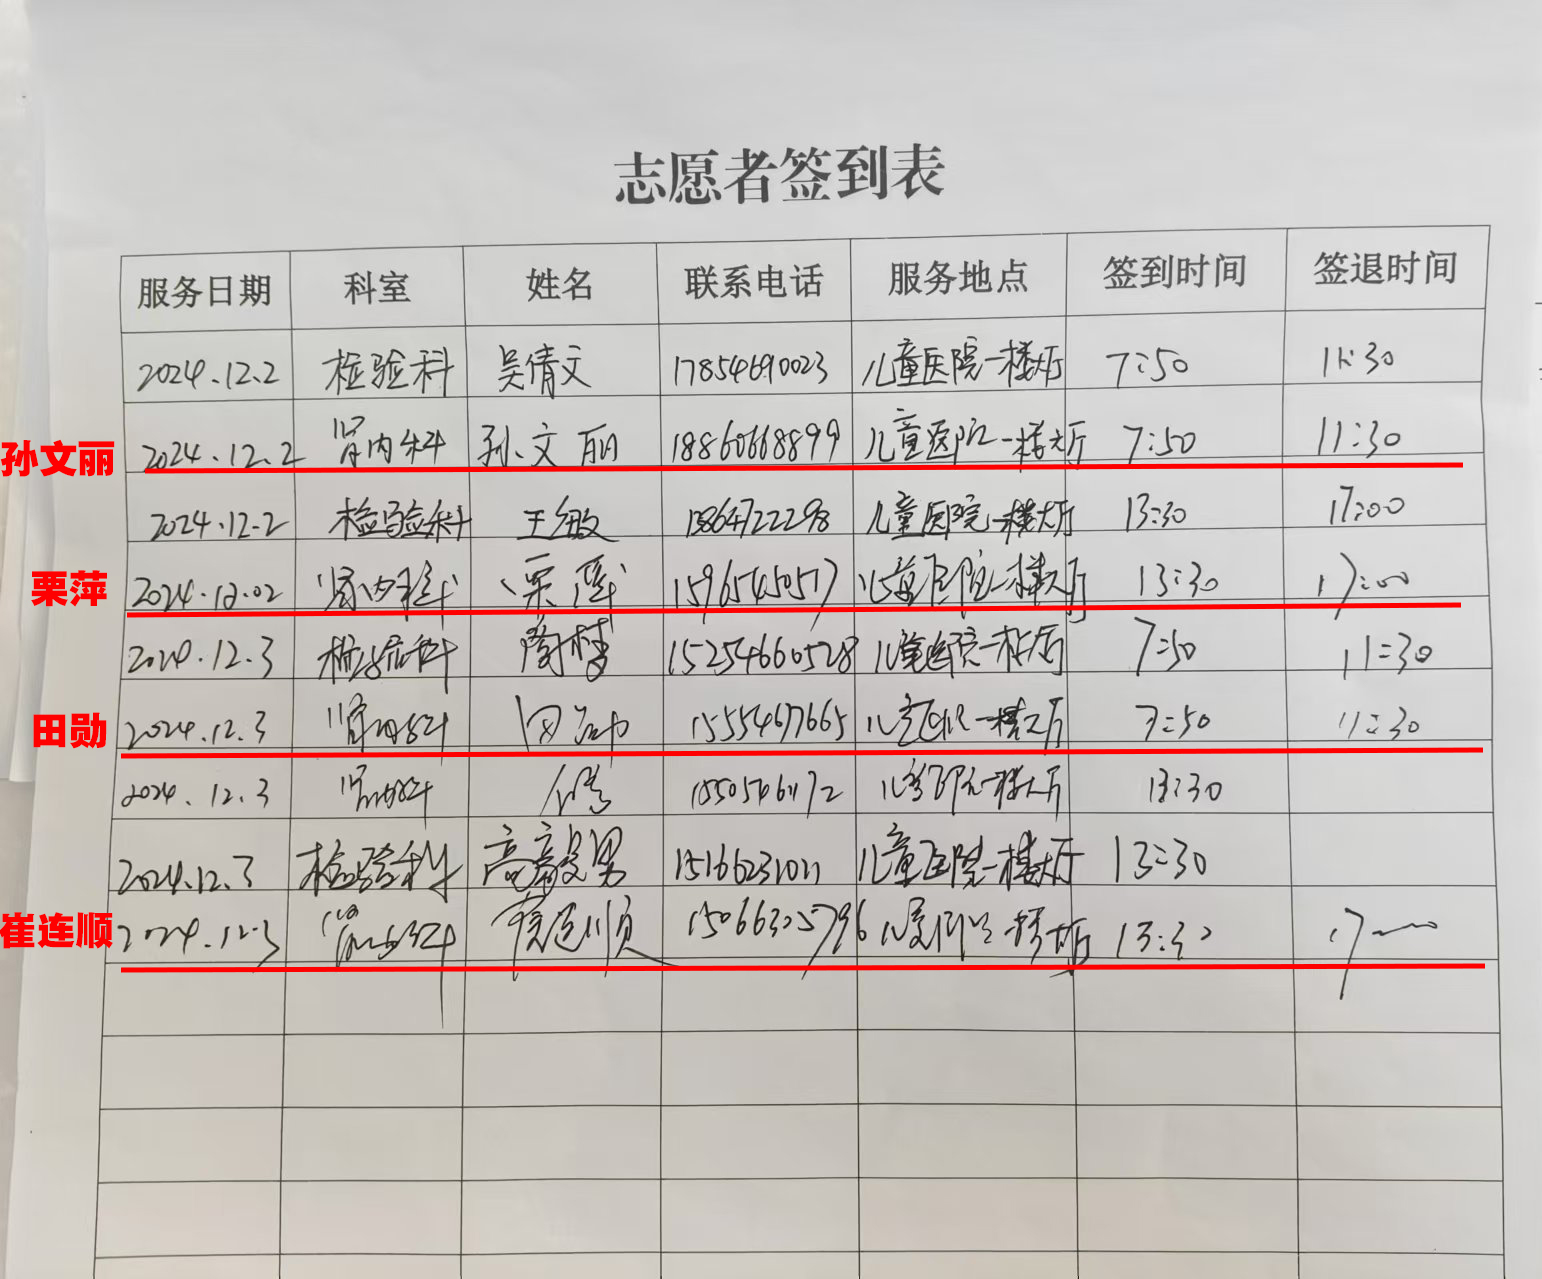 志愿者签到表
服务日期 科室 姓名 联系电话 服务地点 签到时间 签退时间
2024.12.2 检验科 吴倩文 17854690023 儿童医院一楼大厅 7:50 11:30
孙文丽 2024.12.2 肾内科 孙文丽 18860668899 儿童医院一楼大厅 7:50 11:30
2024.12.2 检验科 王敏 13:30 17:00
栗萍 2024.12.02 肾内科 栗萍 15965450517 儿童医院一楼大厅 13:30 17:00
2024.12.3 检验科 15254660528 儿童医院一楼大厅 7:50 11:30
田勋 2024.12.3 肾内科 田勋 15554677665 儿童医院一楼大厅 7:50 11:30
2024.12.3 肾内科 儿童医院一楼大厅 13:30
2024.12.3 检验科 高毅男 15166231011 儿童医院一楼大厅 13:30
崔连顺 2024.12.3 肾内科 崔连顺 15066305796 13:30